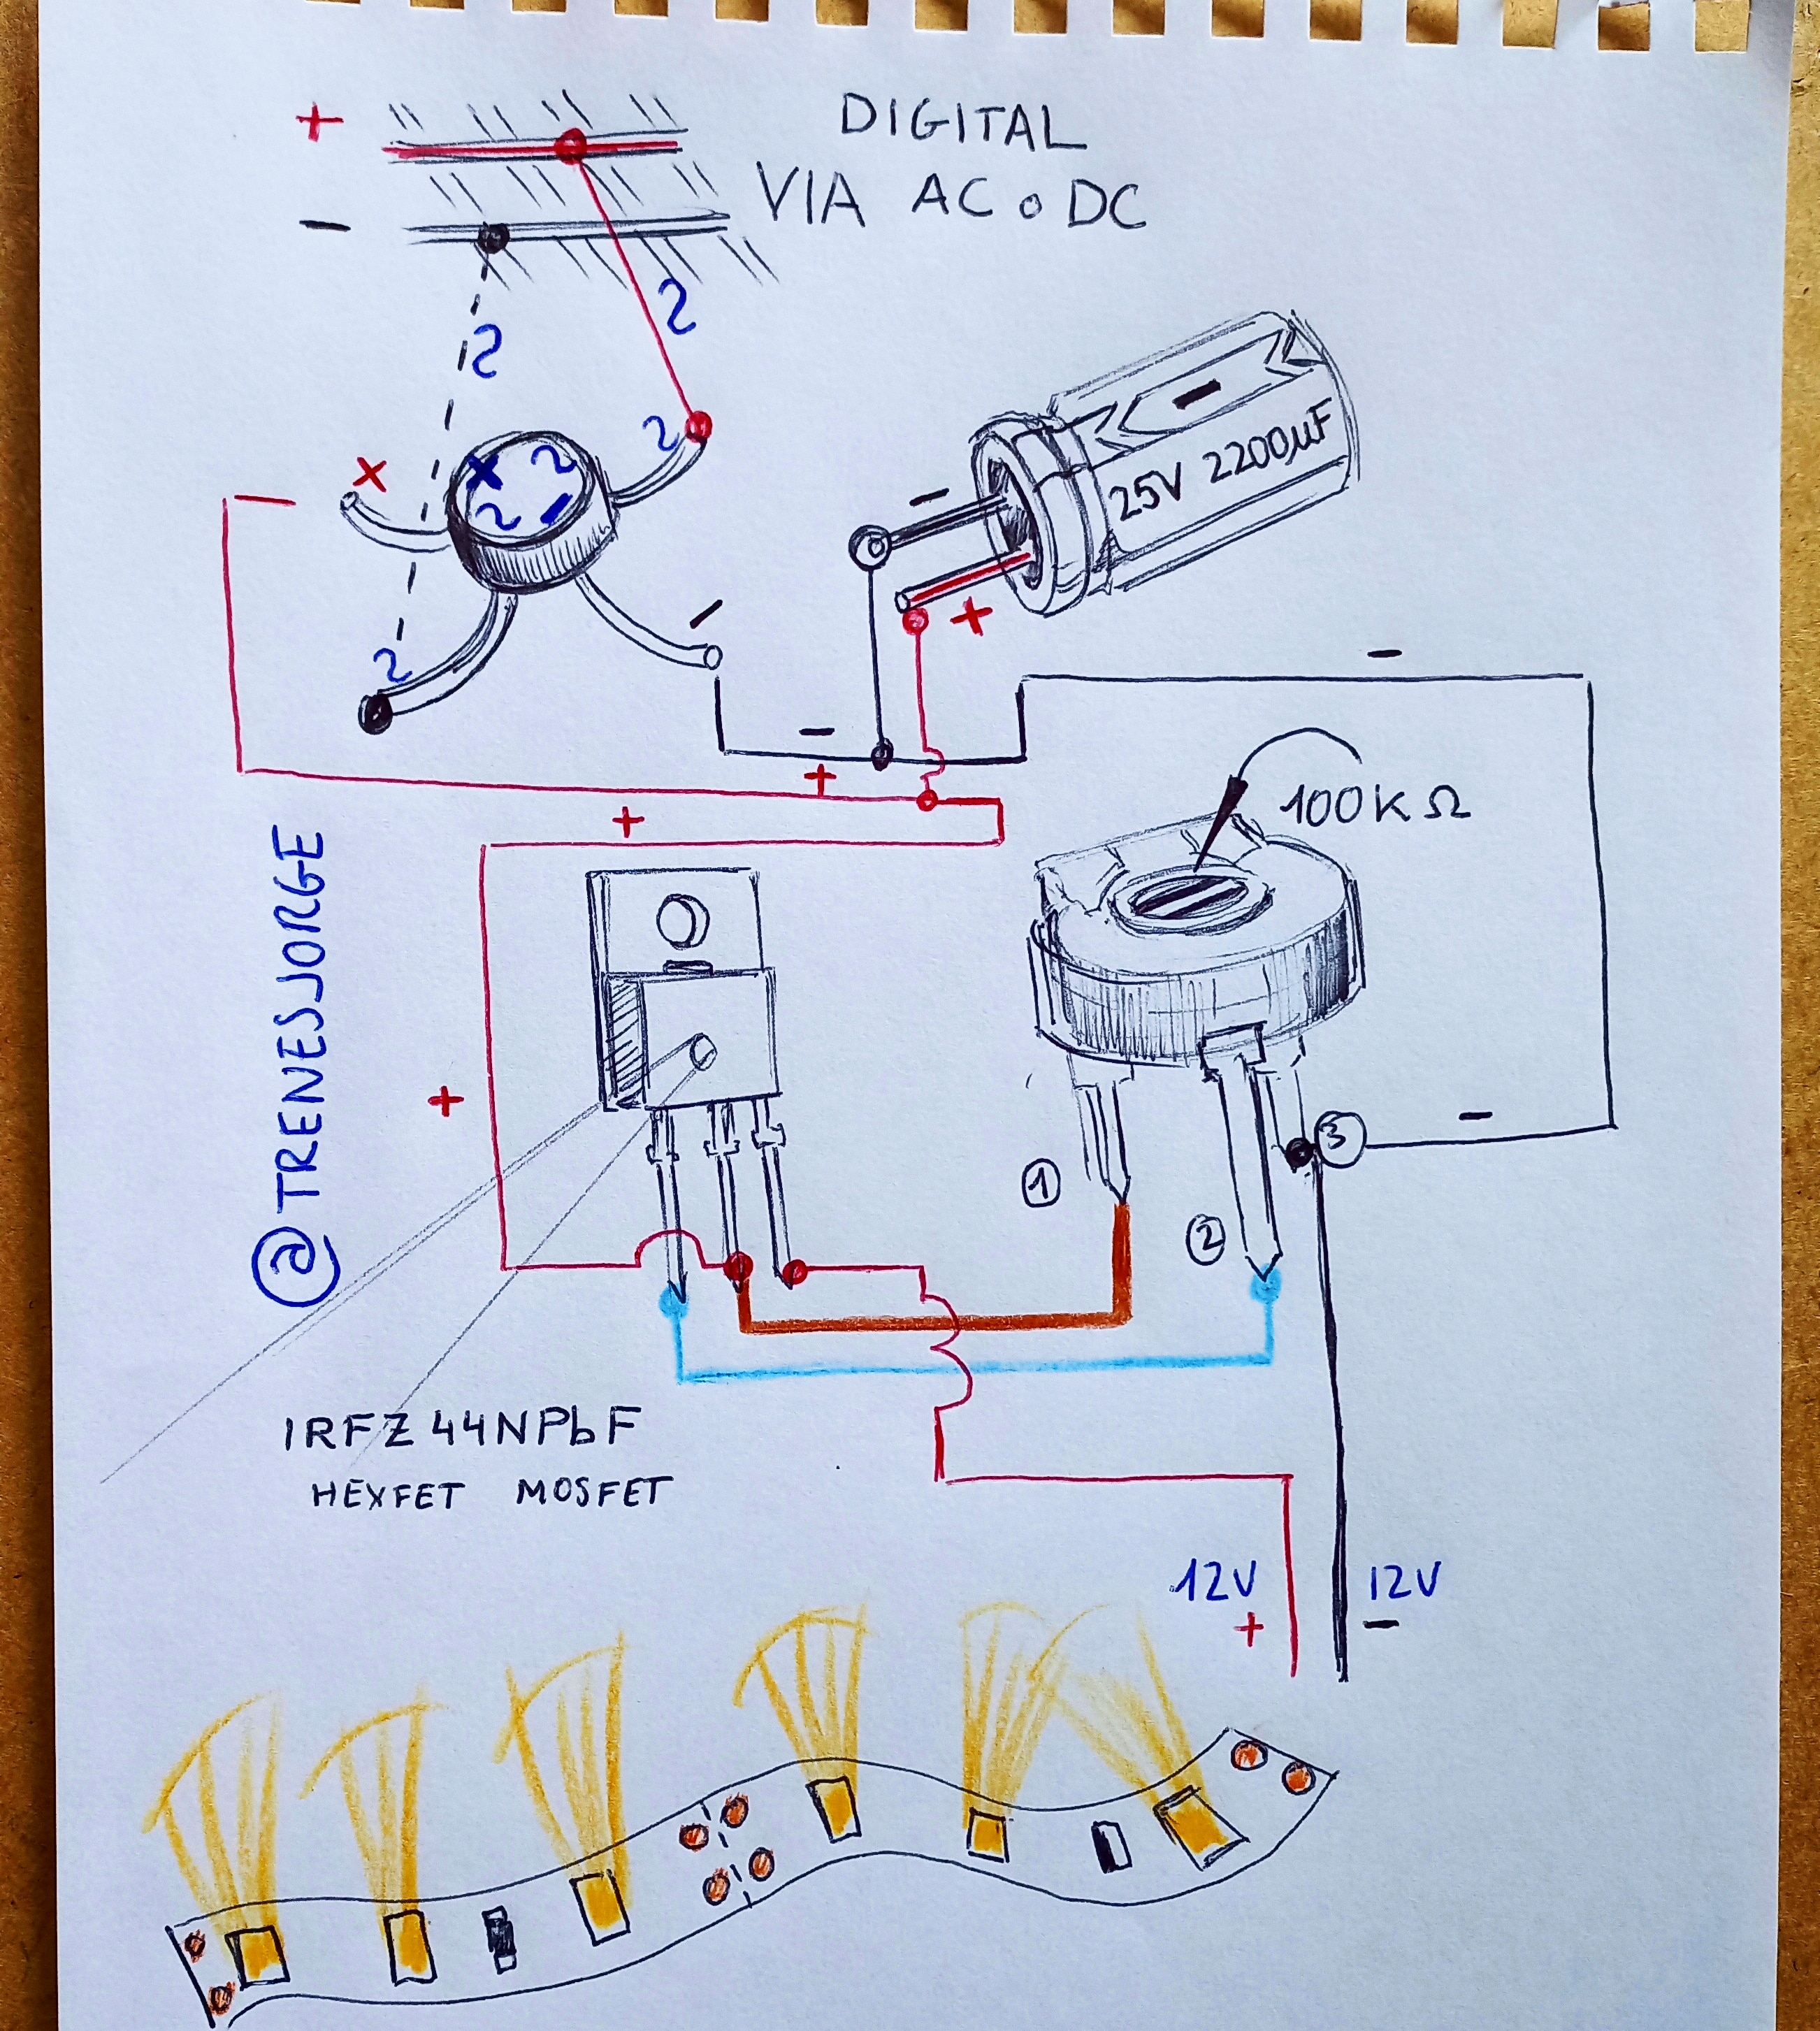 +
DIGITAL
VIA AC o DC
-
2
2
+
2
+ 2
2 -
-
25V 2200µF
-
+
2
-
-
-
+
+
100KΩ
@TRENESJORGE
+
-
3
1
2
IRFZ44NPbF
HEXFET MOSFET
12V 12V
+ -